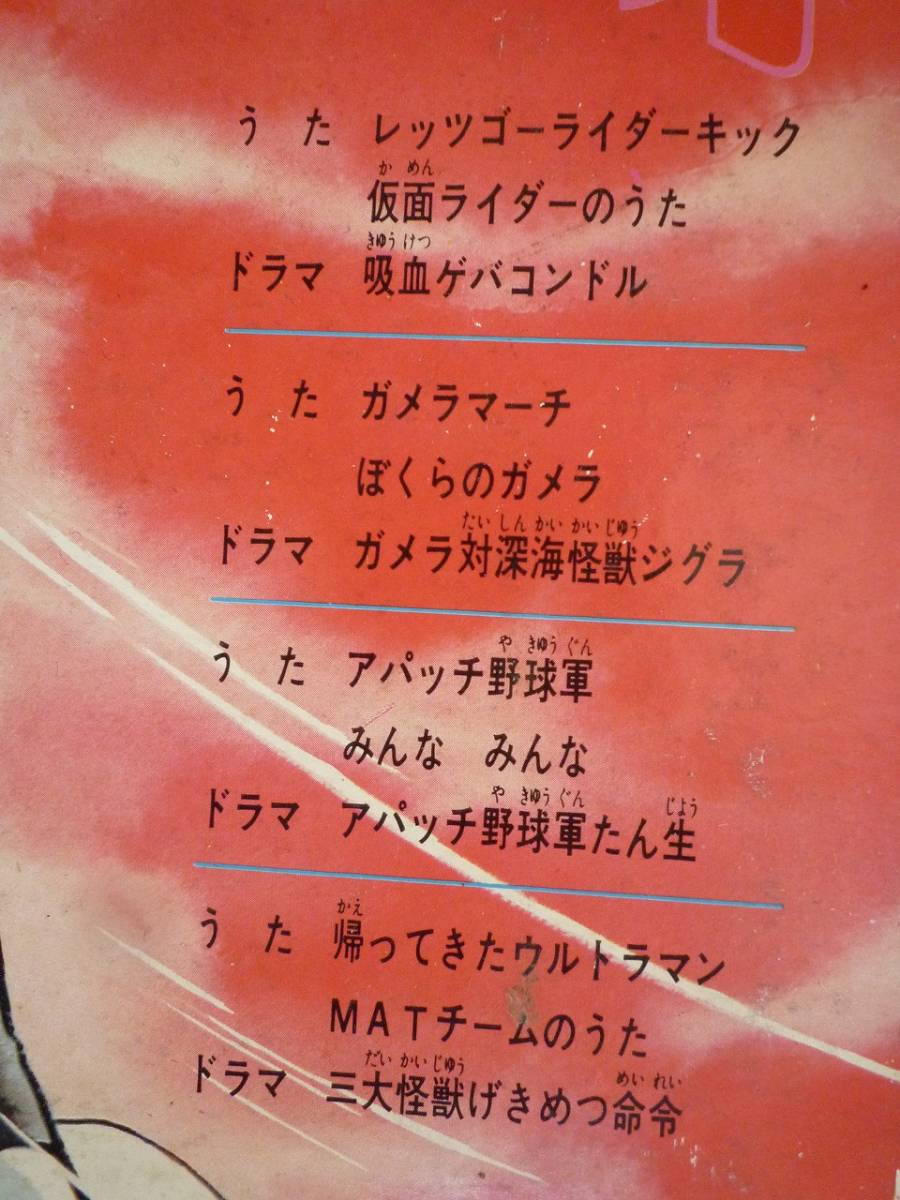 うた レッツゴーライダーキック
かめん
仮面ライダーのうた
きゆうけつ
ドラマ 吸血ゲバコンドル
うた ガメラマーチ
ぼくらのガメラ
たいしんかいかいじゆう
ドラマ ガメラ対深海怪獣ジグラ
やきゆうぐん
うた アパッチ野球軍
みんな みんな
やきゆうぐん じよう
ドラマ アパッチ野球軍たん生
かえ
うた 帰ってきたウルトラマン
MATチームのうた
だいかいじゆう めいれい
ドラマ 三大怪獣げきめつ命令